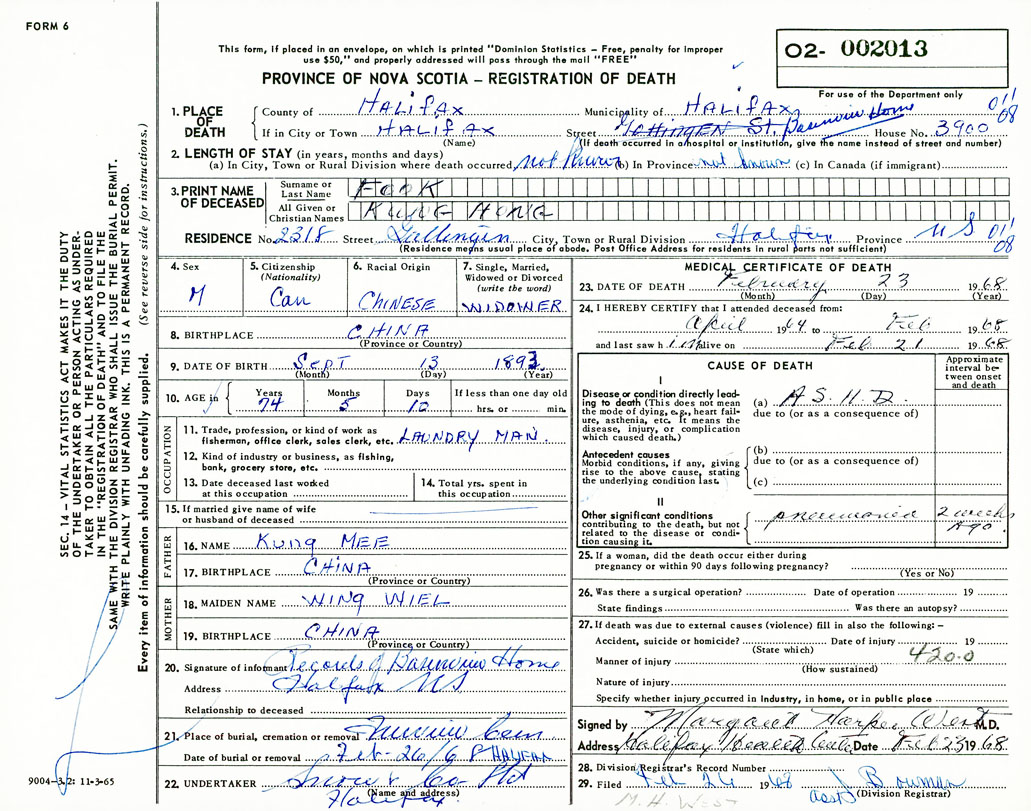 FORM 6
This form, if placed in an envelope, on which is printed "Dominion Statistics – Free, penalty for improper
use $50," and properly addressed will pass through the mail "FREE"
PROVINCE OF NOVA SCOTIA – REGISTRATION OF DEATH
O2- 002013
For use of the Department only
011
08
1. PLACE OF DEATH
County of HALIFAX Municipality of HALIFAX
If in City or Town HALIFAX Street GOTTINGEN St. Basinview Home House No. 3900
(Name) (If death occurred in a hospital or institution, give the name instead of street and number)
2. LENGTH OF STAY (in years, months and days)
(a) In City, Town or Rural Division where death occurred not known (b) In Province not known (c) In Canada (if immigrant)
3. PRINT NAME OF DECEASED
Surname or Last Name FOOK
All Given or Christian Names KUNG HONG
RESIDENCE No. 2318 Street Gottingen City, Town or Rural Division Halifax Province NS 011
08
(Residence means usual place of abode. Post Office Address for residents in rural parts not sufficient)
4. Sex M
5. Citizenship (Nationality) Can
6. Racial Origin CHINESE
7. Single, Married, Widowed or Divorced (write the word) WIDOWER
8. BIRTHPLACE CHINA
(Province or Country)
9. DATE OF BIRTH SEPT 13 1893
(Month) (Day) (Year)
10. AGE in Years 74 Months 5 Days 10 If less than one day old hrs. or min.
OCCUPATION
11. Trade, profession, or kind of work as
fisherman, office clerk, sales clerk, etc. LAUNDRY MAN.
12. Kind of industry or business, as fishing,
bank, grocery store, etc.
13. Date deceased last worked
at this occupation
14. Total yrs. spent in
this occupation
15. If married give name of wife
or husband of deceased
FATHER
16. NAME Kung MEE
17. BIRTHPLACE CHINA
(Province or Country)
MOTHER
18. MAIDEN NAME WING WIEL
19. BIRTHPLACE CHINA
(Province or Country)
20. Signature of informant Records of Basinview Home
Address Halifax NS
Relationship to deceased
21. Place of burial, cremation or removal Fairview Cem
Date of burial or removal Feb-26/68 HALIFAX
22. UNDERTAKER Snow & Co Ltd
(Name and address)
Halifax
MEDICAL CERTIFICATE OF DEATH
23. DATE OF DEATH February 23 1968
(Month) (Day) (Year)
24. I HEREBY CERTIFY that I attended deceased from:
April 1964 to Feb 1968
and last saw him alive on Feb 21 1968
CAUSE OF DEATH
Approximate interval between onset and death
I
Disease or condition directly leading to death (This does not mean the mode of dying, e.g., heart failure, asthenia, etc. It means the disease, injury, or complication which caused death.)
(a) A S H D.
due to (or as a consequence of)
Antecedent causes
Morbid conditions, if any, giving rise to the above cause, stating the underlying condition last.
(b)
due to (or as a consequence of)
(c)
II
Other significant conditions contributing to the death, but not related to the disease or condition causing it.
pneumonia 2 weeks
ago.
25. If a woman, did the death occur either during
pregnancy or within 90 days following pregnancy?
(Yes or No)
26. Was there a surgical operation? Date of operation 19
State findings Was there an autopsy?
27. If death was due to external causes (violence) fill in also the following: –
Accident, suicide or homicide? Date of injury 19
(State which)
Manner of injury 420.0
(How sustained)
Nature of injury
Specify whether injury occurred in Industry, in home, or in public place
Signed by Margaret Harper M.D.
Address Halifax Health Centre Date Feb 23 1968
28. Division Registrar's Record Number
29. Filed Feb 26 1968
asst (Division Registrar)
M. H. WEST
SEC. 14 – VITAL STATISTICS ACT MAKES IT THE DUTY
OF THE UNDERTAKER OR PERSON ACTING AS UNDER-
TAKER TO OBTAIN ALL THE PARTICULARS REQUIRED
IN THE "REGISTRATION OF DEATH" AND TO FILE THE
SAME WITH THE DIVISION REGISTRAR WHO SHALL ISSUE THE BURIAL PERMIT.
WRITE PLAINLY WITH UNFADING INK. THIS IS A PERMANENT RECORD.
Every item of information should be carefully supplied. (See reverse side for instructions.)
9004-3.2: 11-3-65